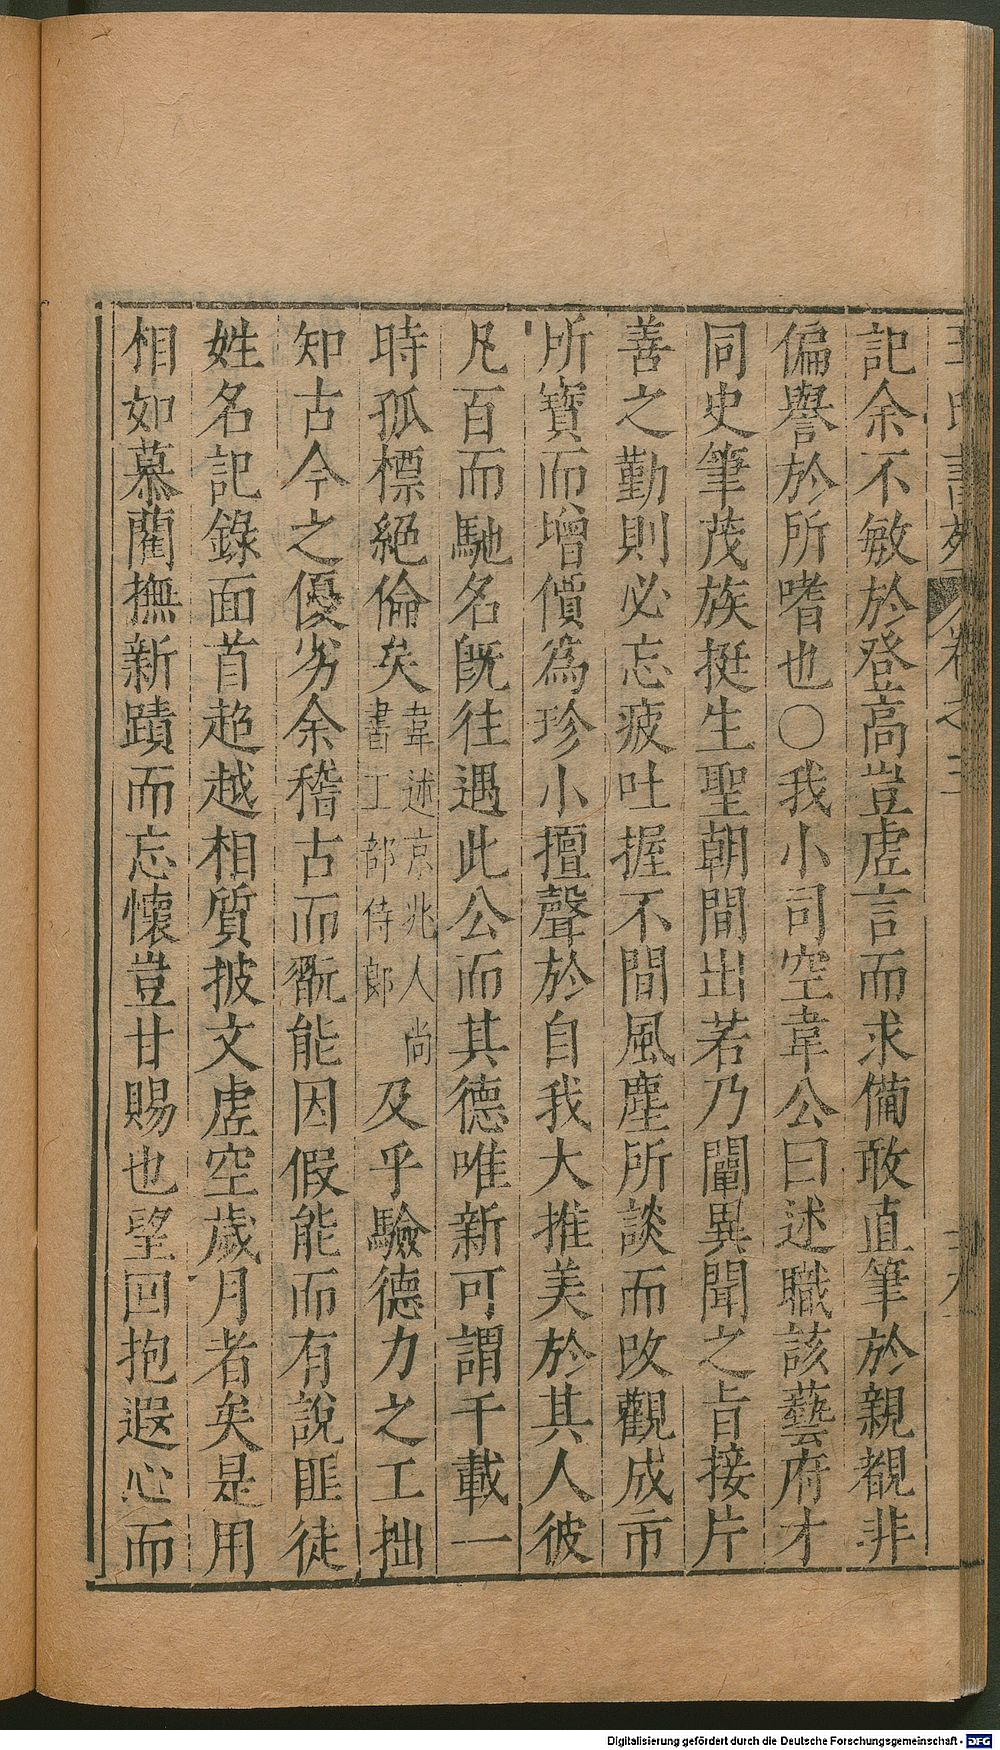 記余不敏於登高豈虛言而求備敢直筆於親覩非
偏譽於所嗜也〇我小司空韋公曰述職該藝府才
同史筆茂族挺生聖朝間出若乃闡異聞之旨接片
善之勤則必忘疲吐握不間風塵所談而改觀成市
所寶而增價為珍小擅聲於自我大推美於其人彼
凡百而馳名旣往遇此公而其德唯新可謂千載一
時孤標絕倫矣韋述京兆人尚書工部侍郎及乎驗德力之工拙
知古今之優劣余稽古而翫能因假能而有說匪徒
姓名記錄面首超越相質披文虛空歲月者矣是用
相如慕藺撫新蹟而忘懷豈甘賜也望回抱遐心而
Digitalisierung gefördert durch die Deutsche Forschungsgemeinschaft - DFG